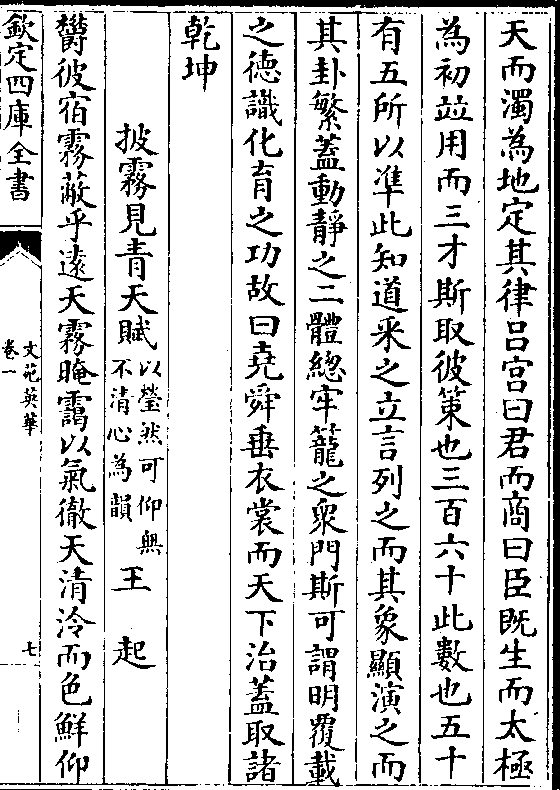 天而濁為地定其律呂宫曰君而商曰臣既生而太極
為初竝用而三才斯取彼策也三百六十此數也五十
有五所以凖此知道釆之立言列之而其象顯演之而
其卦繁蓋動靜之二體總牢籠之衆門斯可謂明覆載
之徳識化育之功故曰堯舜垂衣裳而天下治蓋取諸
乾坤
披霧見青天賦以瑩然可仰無不清心為韻 王起
欝彼宿霧蔽乎遠天霧晻靄以氣徹天清泠而色鮮仰
欽定四庫全書
文苑英華
卷一
七